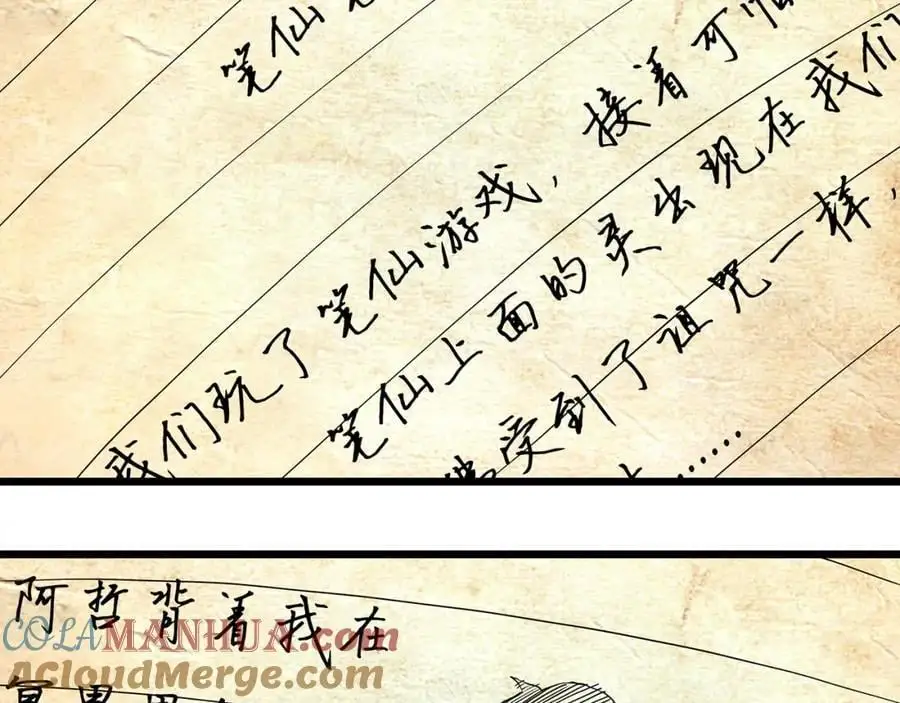 笔仙
我们玩了笔仙游戏，接着可怕
笔仙上面的灵出现在我们
受到了诅咒一样，
……
阿哲背着我在
COLAMANHUA.com
ACloudMerge.com